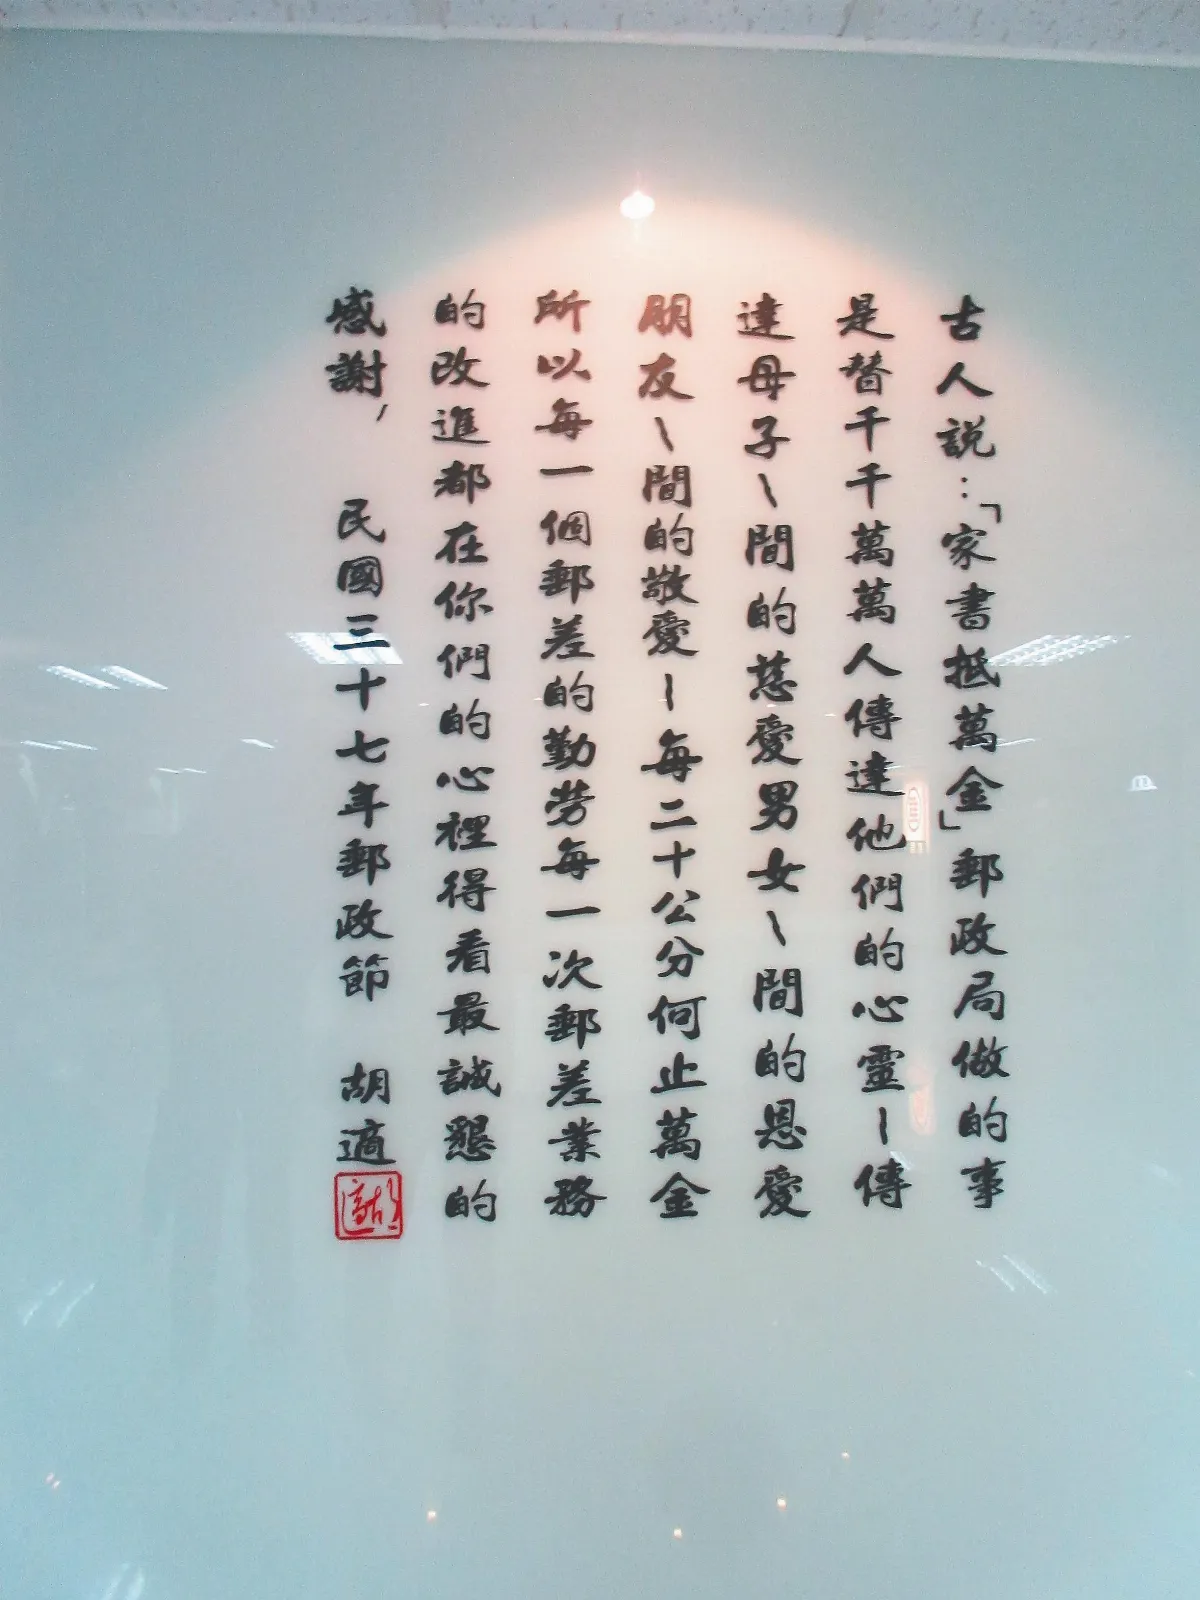 古人説：「家書抵萬金」郵政局做的事
是替千千萬萬人傳達他們的心靈～傳
達母子～間的慈愛男女～間的恩愛
朋友～間的敬愛～每二十公分何止萬金
所以每一個郵差的勤勞每一次郵差業務
的改進都在你們的心裡得看最誠懇的
感謝， 民國三十七年郵政節 胡適